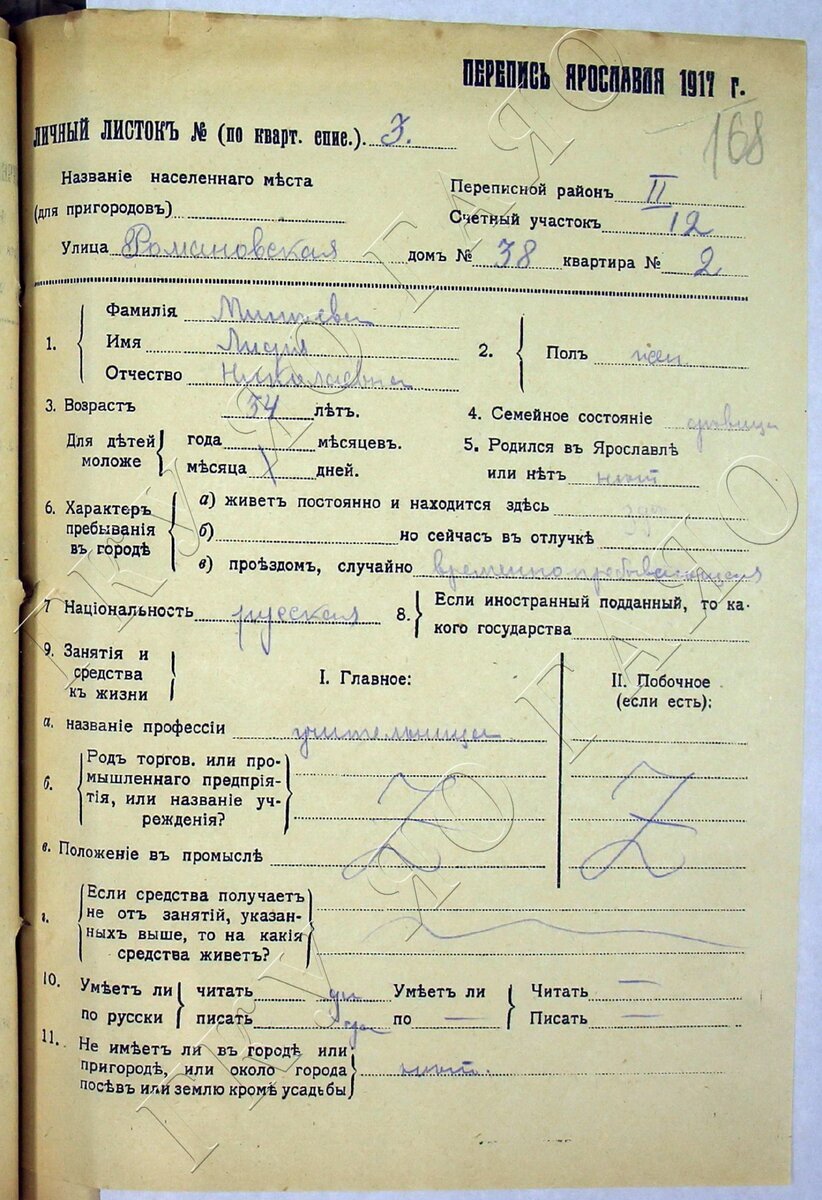 ПЕРЕПИСЬ ЯРОСЛАВЛЯ 1917 г.
168
ЛИЧНЫЙ ЛИСТОКЪ № (по кварт. спис.). 3.
Названіе населеннаго мѣста
(для пригородовъ)
Переписной районъ II
Счетный участокъ 12
Улица Романовская домъ № 38 квартира № 2
1. Фамилія
Имя Лидія
Отчество Николаевна
2. Полъ жен
3. Возрастъ 34 лѣтъ.
Для дѣтей моложе
года мѣсяцевъ.
мѣсяца дней.
4. Семейное состояніе дѣвица
5. Родился въ Ярославлѣ
или нѣтъ нѣтъ
6. Характеръ
пребыванія
въ городѣ
а) живетъ постоянно и находится здѣсь
б) но сейчасъ въ отлучкѣ
в) проѣздомъ, случайно временно пребывающая
7 Національность русская
8. Если иностранный подданный, то ка-
кого государства
9. Занятія и
средства
къ жизни
I. Главное:
II. Побочное
(если есть):
а. названіе профессіи учительница
б. Родъ торгов. или про-
мышленнаго предпрія-
тія, или названіе уч-
режденія?
в. Положеніе въ промыслѣ
г. Если средства получаетъ
не отъ занятій, указан-
ныхъ выше, то на какія
средства живетъ?
10. Умѣетъ ли
по русски
читать да
писать да
Умѣетъ ли
по —
Читать —
Писать —
11. Не имѣетъ ли въ городѣ или
пригородѣ, или около города
посѣвъ или землю кромѣ усадьбы нѣтъ.
ГКУ ЯО ГАЯО
ГКУ ЯО ГАЯО